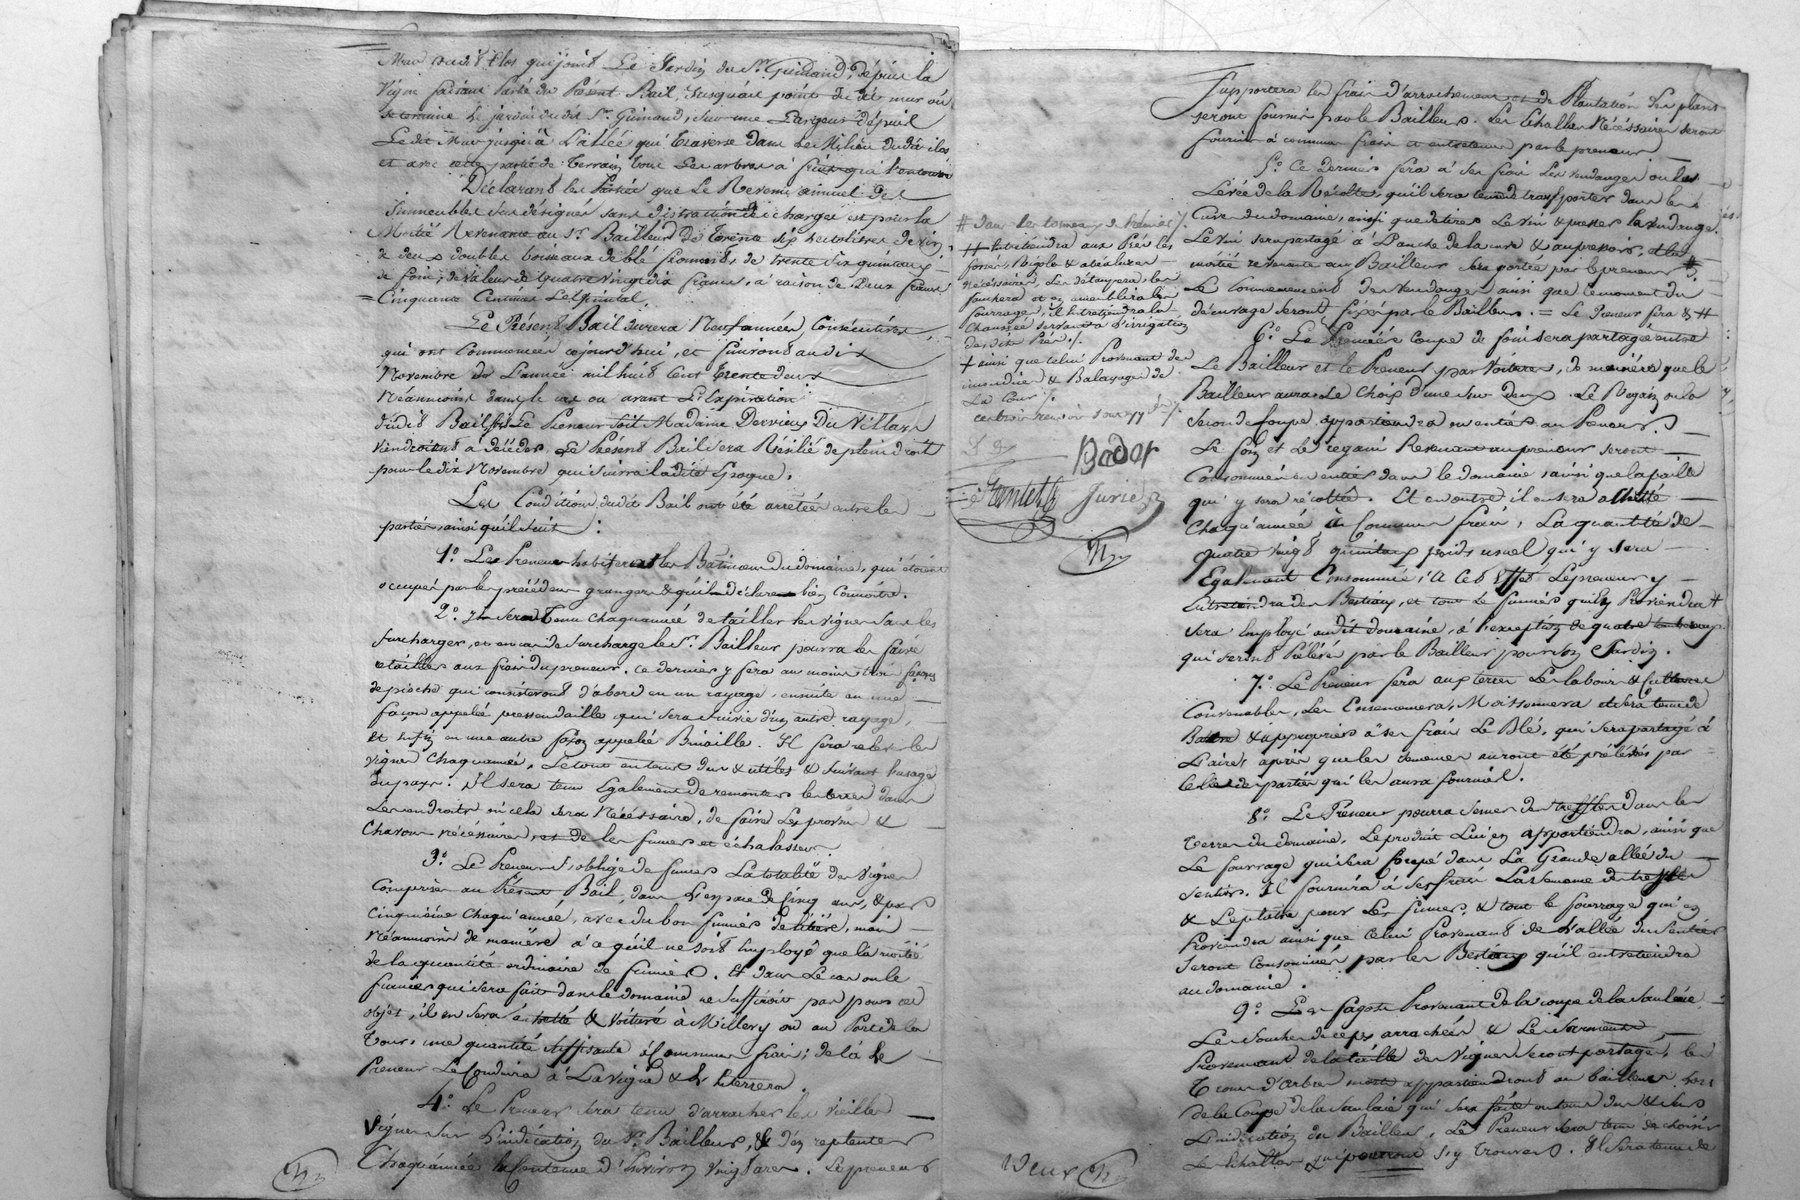 Mur dudit Clos qui joint Le Jardin du Sr. Guimand, depuis la
Vigne faisant Partie du Présent Bail, Jusqu'au point du dit mur où
se termine le jardin dudit Sr. Guimand, sur une Largeur depuis
Le dit Mur jusqu'à L'allée qui Traverse dans le Milieu dudit clos
et avec cette partie de Terrain tous les arbres à fruit
Déclarant les Parties que Le Revenu annuel des
Immeubles sus désignés sans distraction de charges est pour la
Moitié Revenante au Sr. Bailleur De trente six hectolitres de vin,
de deux doubles boisseaux de blé froment, de trente six quintaux
de foin, de valeur de Quatre vingt dix francs, à raison de Deux francs
Cinquante Centimes Le Quintal.
Le Présent Bail durera Neuf années Consécutives
qui ont Commencées cejourd'hui, et finiront au dix
Novembre de L'année mil huit Cent trente deux
Néanmoins dans le cas où avant L'Expiration
dudit Bail Le Preneur soit Madame Dervieux Du Villars
Viendroient à décéder, Le Présent Bail sera Résilié de plein droit
pour le dix Novembre qui suivra ladite Epoque.
Les Conditions dudit Bail ont été arrêtées entre les
parties ainsi qu'il suit :
1o. Les Preneurs habiteront les Bâtimens du domaine, qui étoient
occupés par le précédent granger & qu'il déclare bien Connoitre.
2o. Il sera Tenu Chaqu'année de tailler les vignes sans les
surcharger, et en cas de surcharge le Sr. Bailleur pourra les faire
retailler aux frais du preneur. Ce dernier y fera au moins trois façons
de pioche qui consisteront d'abord en un rayage, ensuite en une
façon appelée pressendaille qui sera suivie d'un autre rayage,
Et enfin en une autre façon appelée Binaille. Il fera relever les
vignes Chaqu'année, Le tout en tems du & utiles & suivant l'usage
du pays. Il sera tenu Egalement de remonter les terres dans
Les endroits où cela sera Nécéssaire, de faire Les provins &
Chavons nécéssaires, et de les fumer et échalasser.
3o. Le Preneur s'oblige de fumer La totalité des Vignes
Comprises au Présent Bail, dans L'espace de Cinq ans, & par
Cinquième chaqu'année, avec du bon fumier de litière, mais
Néanmoins de manière à ce qu'il ne soit Employé que la moitié
de la quantité ordinaire de fumier. Et dans Le cas où le
fumier qui sera fait dans le domaine ne suffiroit pas pour cet
objet, il en sera acheté & voituré à Millery ou au Port de la
Tour, une quantité suffisante à Commun frais; de là Le
Preneur Le Conduira à La Vigne & L'y Enterrera.
4o. Le Preneur sera tenu d'arracher les vieilles
Vignes sur L'indication du Sr. Bailleur, & d'en replenter
Chaqu'année la Contenue d'Environ Vingt ares. Le preneur
# dans les tonneaux
# Entretiendra aux Prés les
fossés, Rigoles &
nécéssaires, Les Détaupera, les
fauchera et en amoncelera les
fourrages; il Entretiendra la
Chaussée servant à l'irrigation
desdits Prés.
+ ainsi que Celui Provenant des
immondices & Balayages de
La Cour
Bador
Jurie
deux
Supportera les frais d'arrachement et de Plantation, les plants
seront fournis par le Bailleur. Les Echallas Nécéssaires seront
fournis à commun frais et entretenus par le preneur
5o. Ce dernier fera à ses frais Les vendanges ou la
Levée de la Récolte, qu'il sera tenu de transporter dans les
Cuves du domaine, ainsi que de tirer Le vin & presser la vendange.
Le vin sera partagé à L'anche de la cuve & au pressoir, et la
moitié revenante au Bailleur sera portée par le preneur #.
Le commencement des vendanges ainsi que le moment du
décuvage seront fixés par le Bailleur. = Le Preneur fera & #
6o. La Première Coupe de foin sera partagée entre
Le Bailleur et le Preneur par voitures, de manière que le
Bailleur aura Le Choix d'une sur deux. Le Regain ou la
seconde Coupe appartiendra en entier au Preneur.
Le foin et Le regain Revenant au preneur seront
Consommés en entier dans le domaine, ainsi que la paille
qui y sera récoltée. Et en outre il en sera acheté
chaqu'année à Commun frais, La quantité de
quatre vingt quintaux poids usuel qui y sera
Egalement Consommée; à Cet Effet Le preneur y
Entretiendra des Bestiaux, et tout le fumier qui En Proviendra +
sera Employé au dit domaine, à l'exception de quatre tombereaux
qui seront Prélevés par le Bailleur pour son Jardin.
7o. Le Preneur fera aux terres Les labours & cultures
Convenables, Les Ensemencera, Moissonnera et sera tenu de
Battre & approprier à ses frais Le Blé, qui sera partagé à
L'aire, après que les semences auront été prélevées par
Celle des parties qui les aura fournies.
8o. Le Preneur pourra semer des treffles dans les
Terres du domaine, Le produit Lui en appartiendra, ainsi que
Le fourrage qui sera Coupé dans La Grande allée du
Sentier. Il fournira à ses frais La semence de treffle
& Le plâtre pour Les fumer, & tout le fourrage qui en
Proviendra ainsi que Celui Provenant de L'allée du sentier
Seront Consommés par les Bestiaux qu'il entretiendra
au domaine.
9o. Les fagots Provenant de la coupe de la Saulaie
Les souches de ceps arrachées & Les Sarments
Provenant de la taille des Vignes seront partagés, les
Troncs d'arbres morts appartiendront au bailleur. Lors
de la Coupe de la Saulaie qui sera faite en tems du & sur
L'indication du Bailleur, Le Preneur sera tenu de choisir
Les Echallas qui pourront s'y trouver. Il sera tenu de